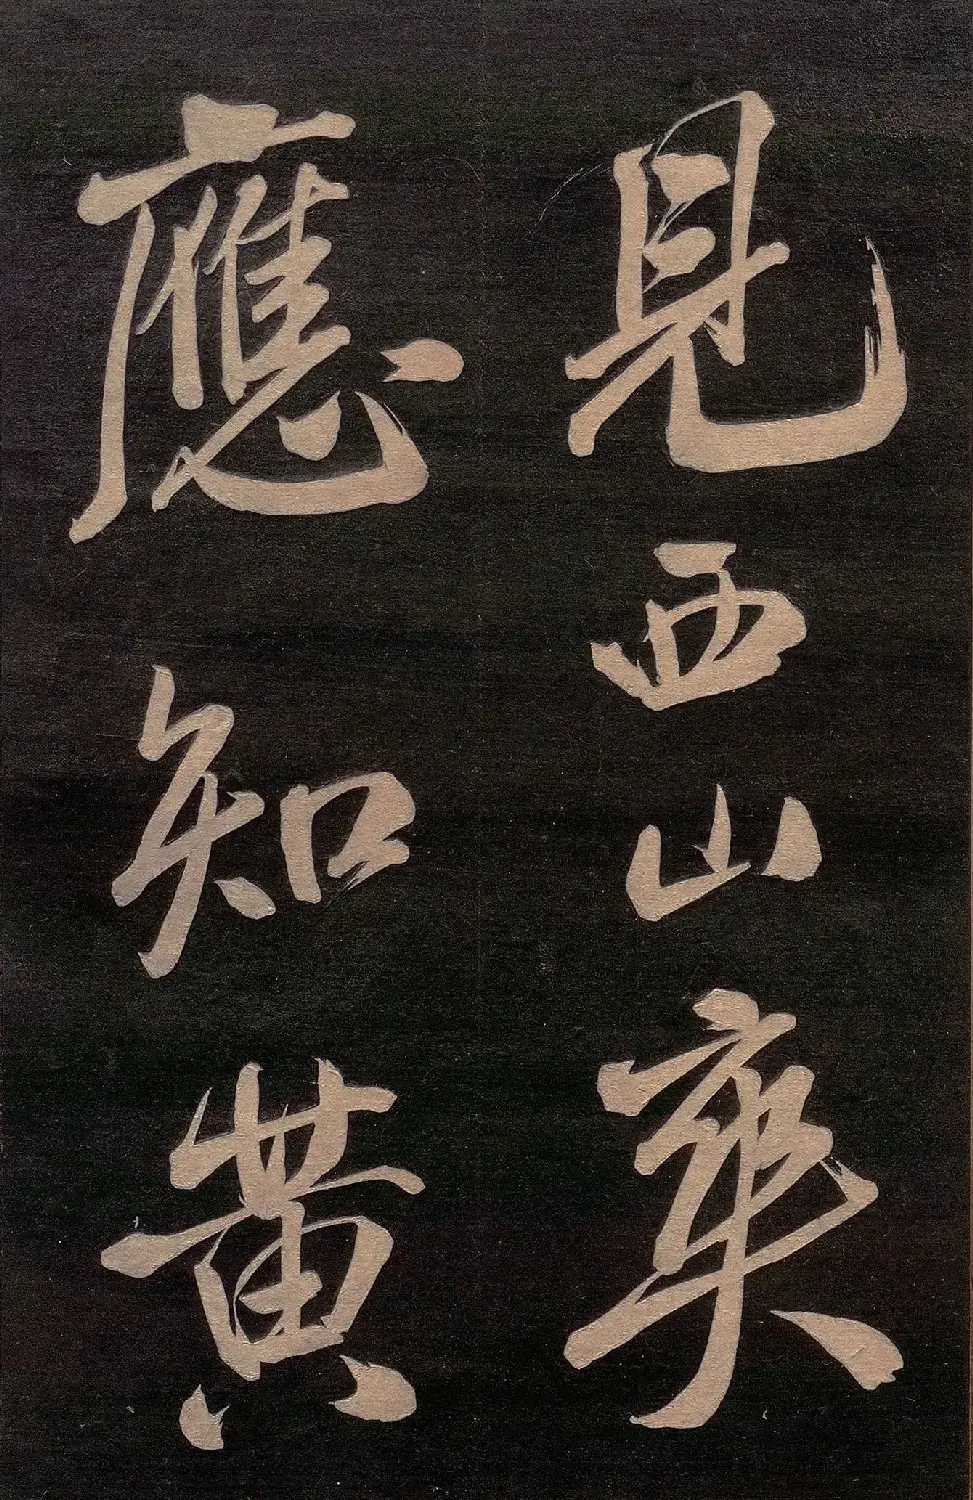 見西山爽
應知黄